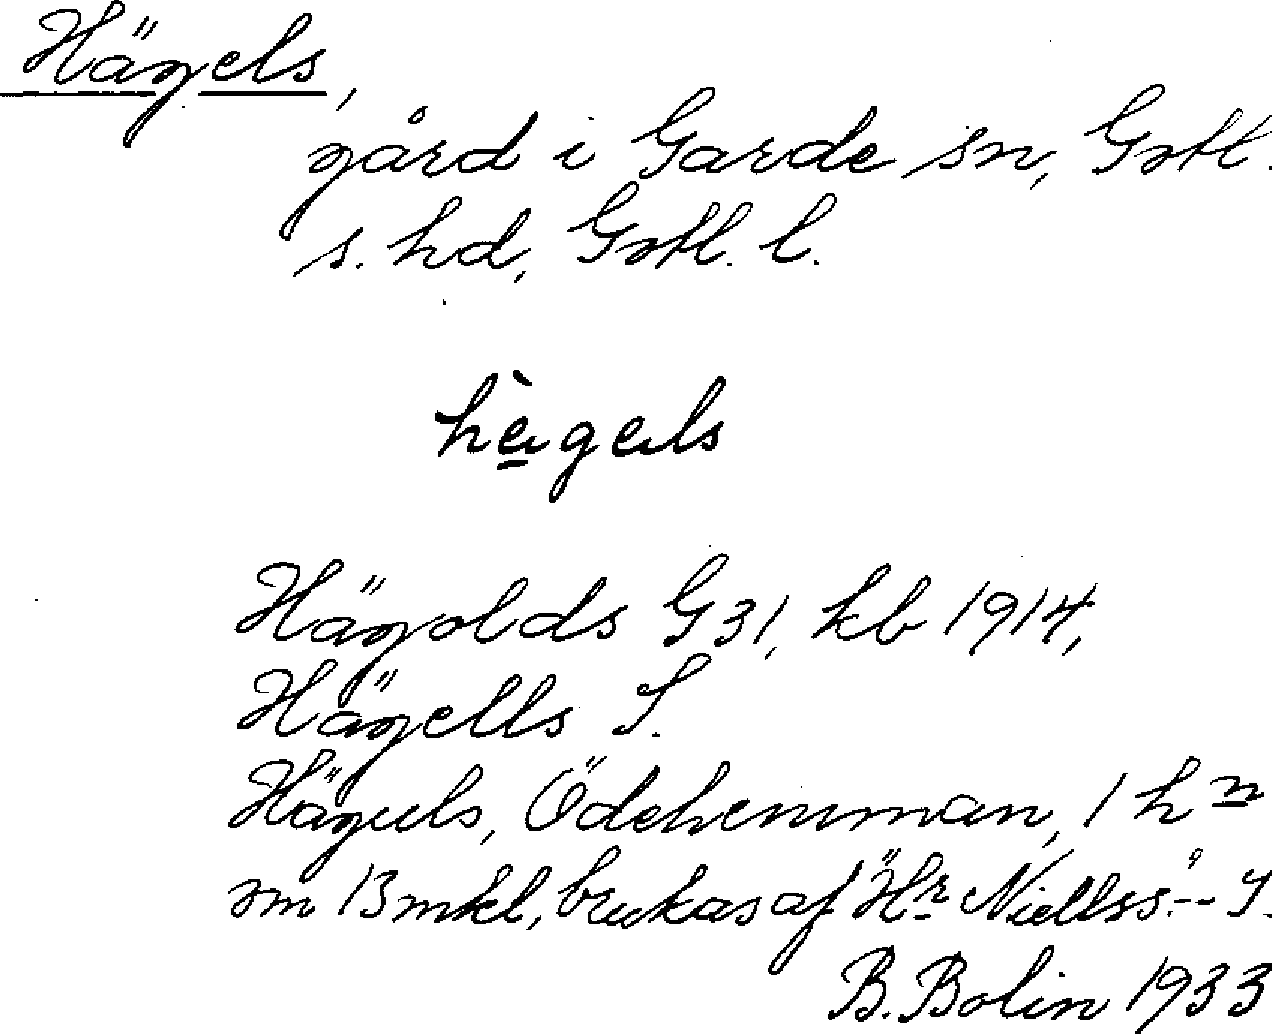 Hägels,
gård i Garde sn, Gotl.
s. hd, Gotl. l.
hägels
Hägolds G31, kb 1914,
Hägells S.
Häguls, Ödehemman, 1 hn
om 13 mkl, brukas af "Hr Niellss." --
B. Bolin 1933